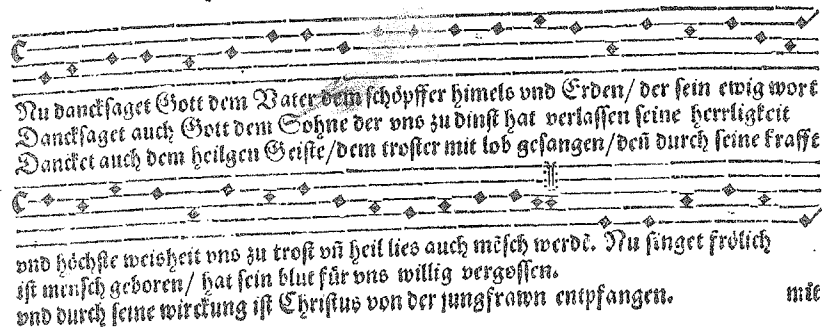 Nu dancksaget Gott dem Vater dem schöpffer himels vnd Erden/ der sein ewig wort
Dancksaget auch Gott dem Sohne der vns zu dinst hat verlassen seine herrligkeit
Dancket auch dem heilgen Geiste/dem troster mit lob gesangen/deñ durch seine krafft
vnd höchste weisheit vns zu trost vñ heil lies auch mẽsch werdẽ. Nu singet frölich
ist mensch geboren/ hat sein blut für vns willig vergossen.
vnd durch seine wirckung ist Christus von der jungfrawn entpfangen. mit